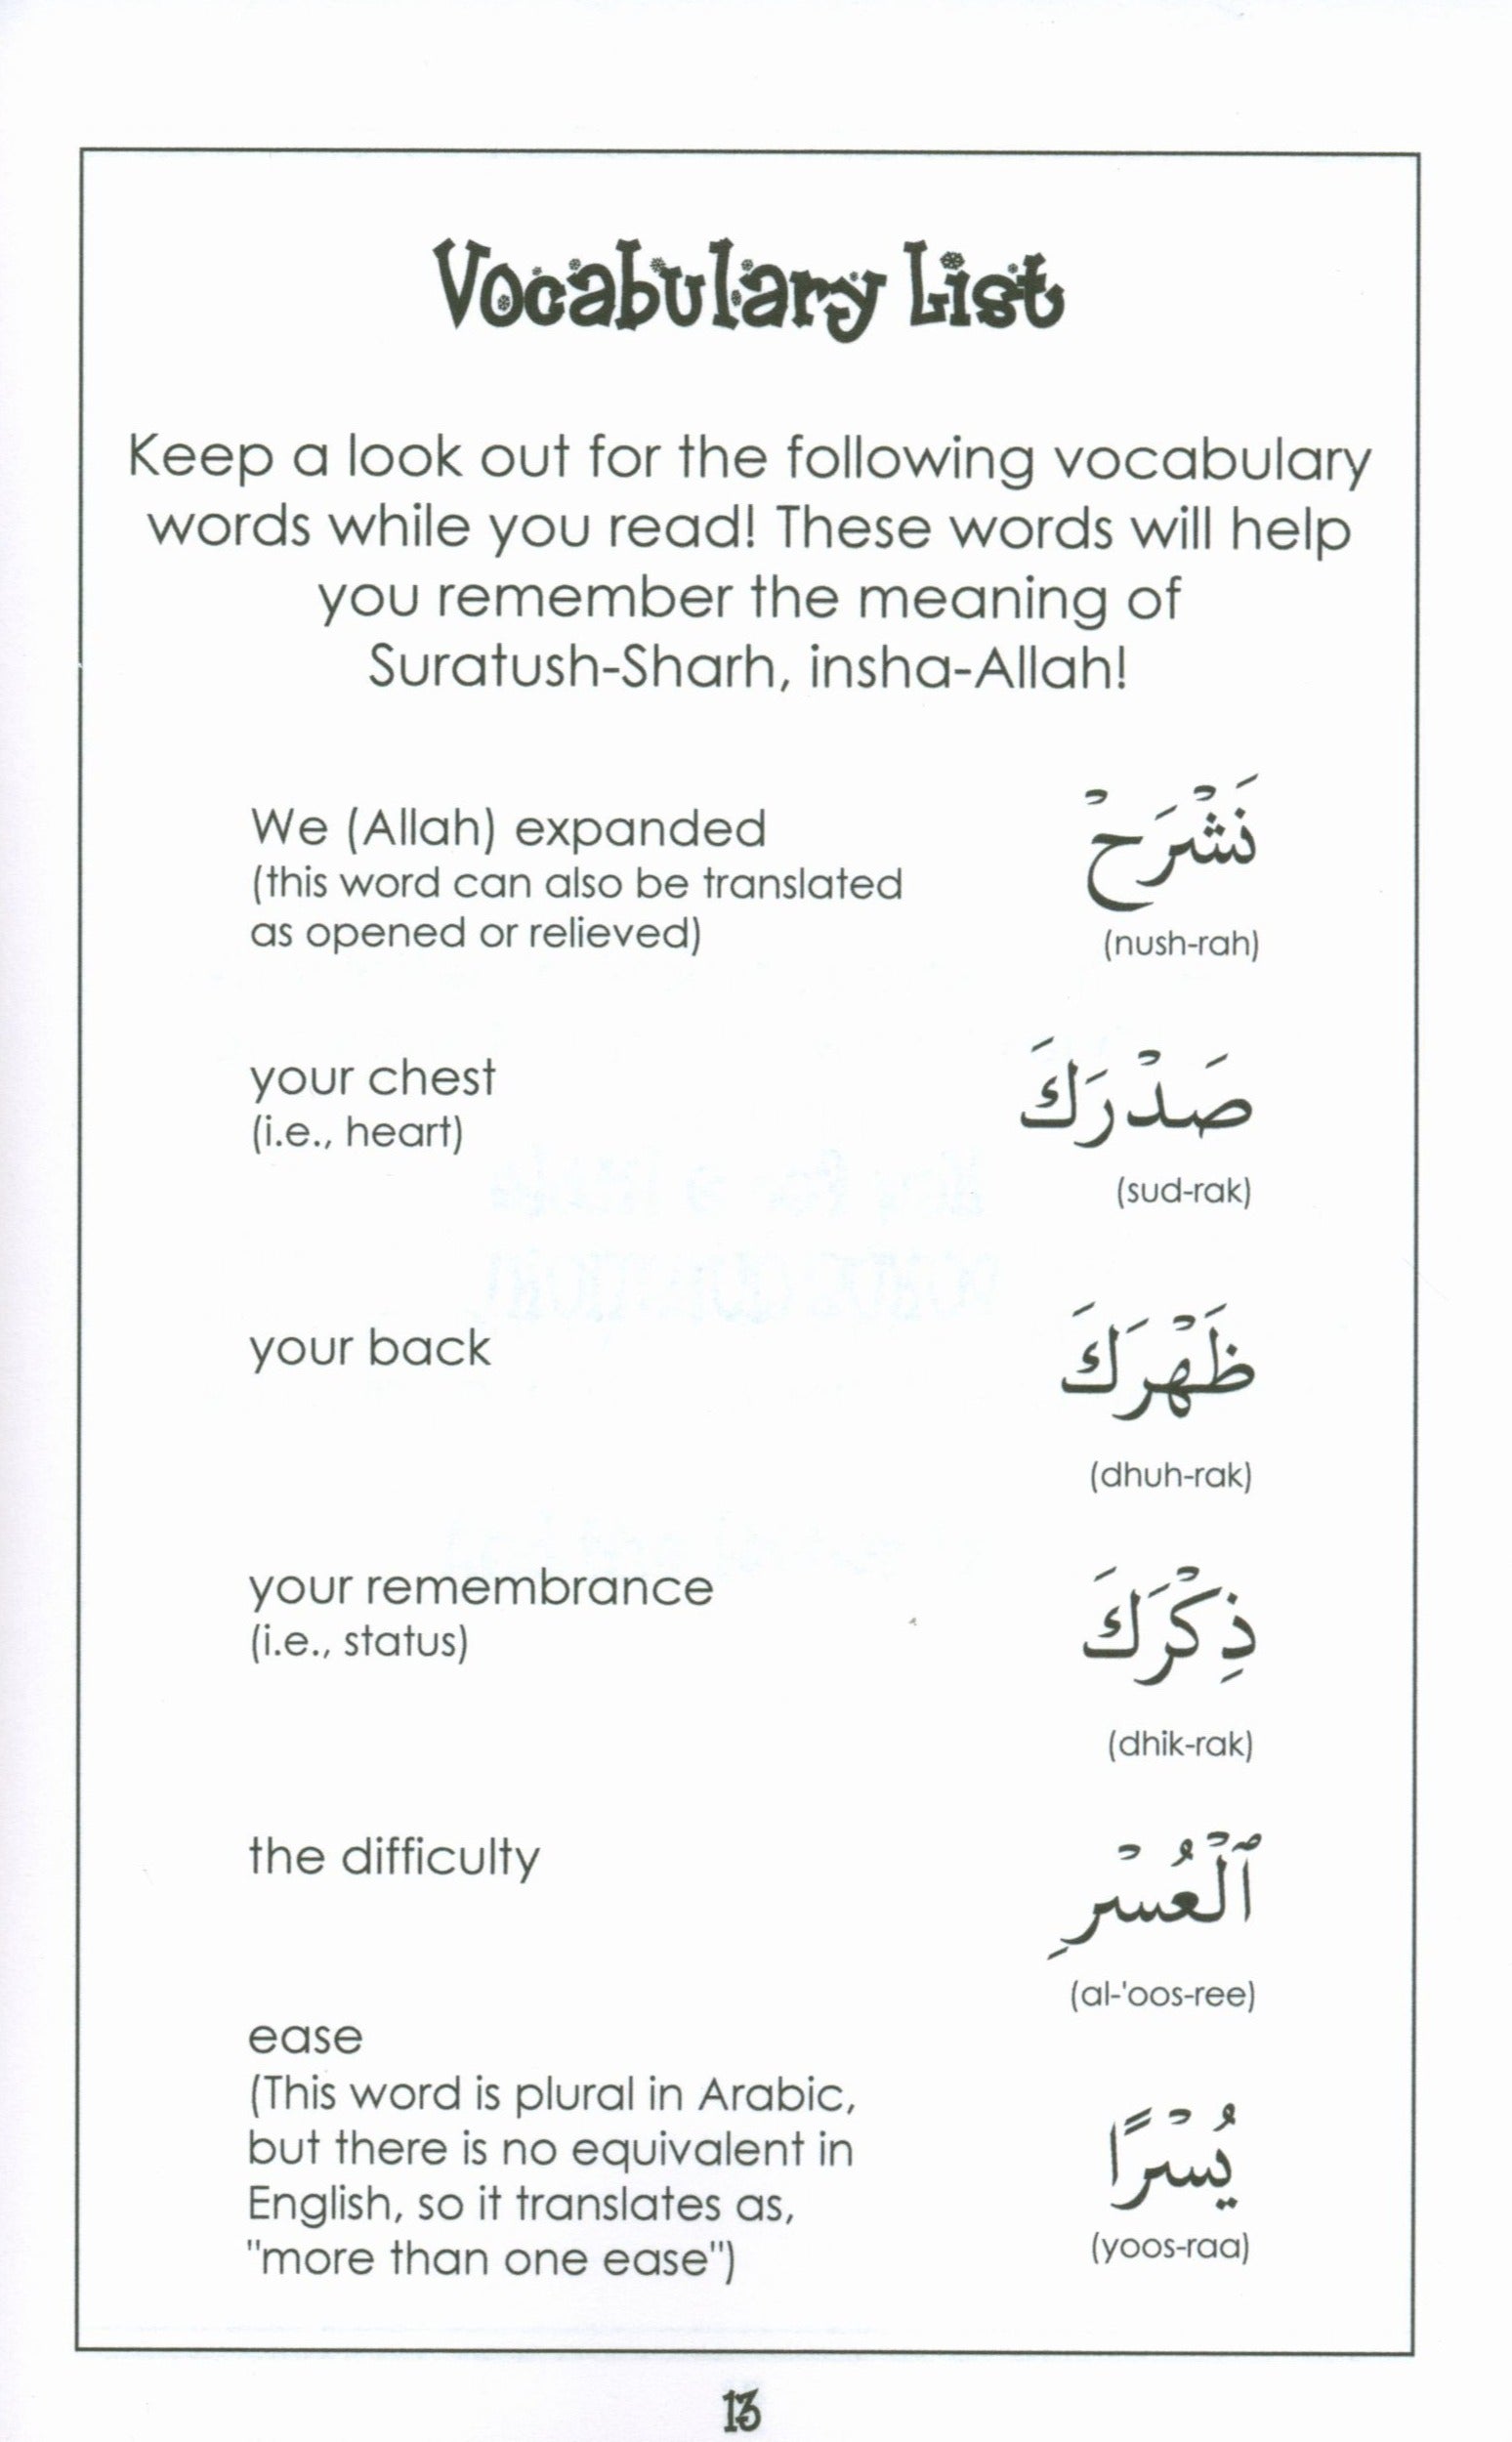 Vocabulary List
Keep a look out for the following vocabulary
words while you read! These words will help
you remember the meaning of
Suratush-Sharh, insha-Allah!
We (Allah) expanded
(this word can also be translated
as opened or relieved)
نَشْرَحْ
(nush-rah)
your chest
(i.e., heart)
صَدْرَكَ
(sud-rak)
your back
ظَهْرَكَ
(dhuh-rak)
your remembrance
(i.e., status)
ذِكْرَكَ
(dhik-rak)
the difficulty
ٱلْعُسْرِ
(al-'oos-ree)
ease
(This word is plural in Arabic,
but there is no equivalent in
English, so it translates as,
"more than one ease")
يُسْرًا
(yoos-raa)
13